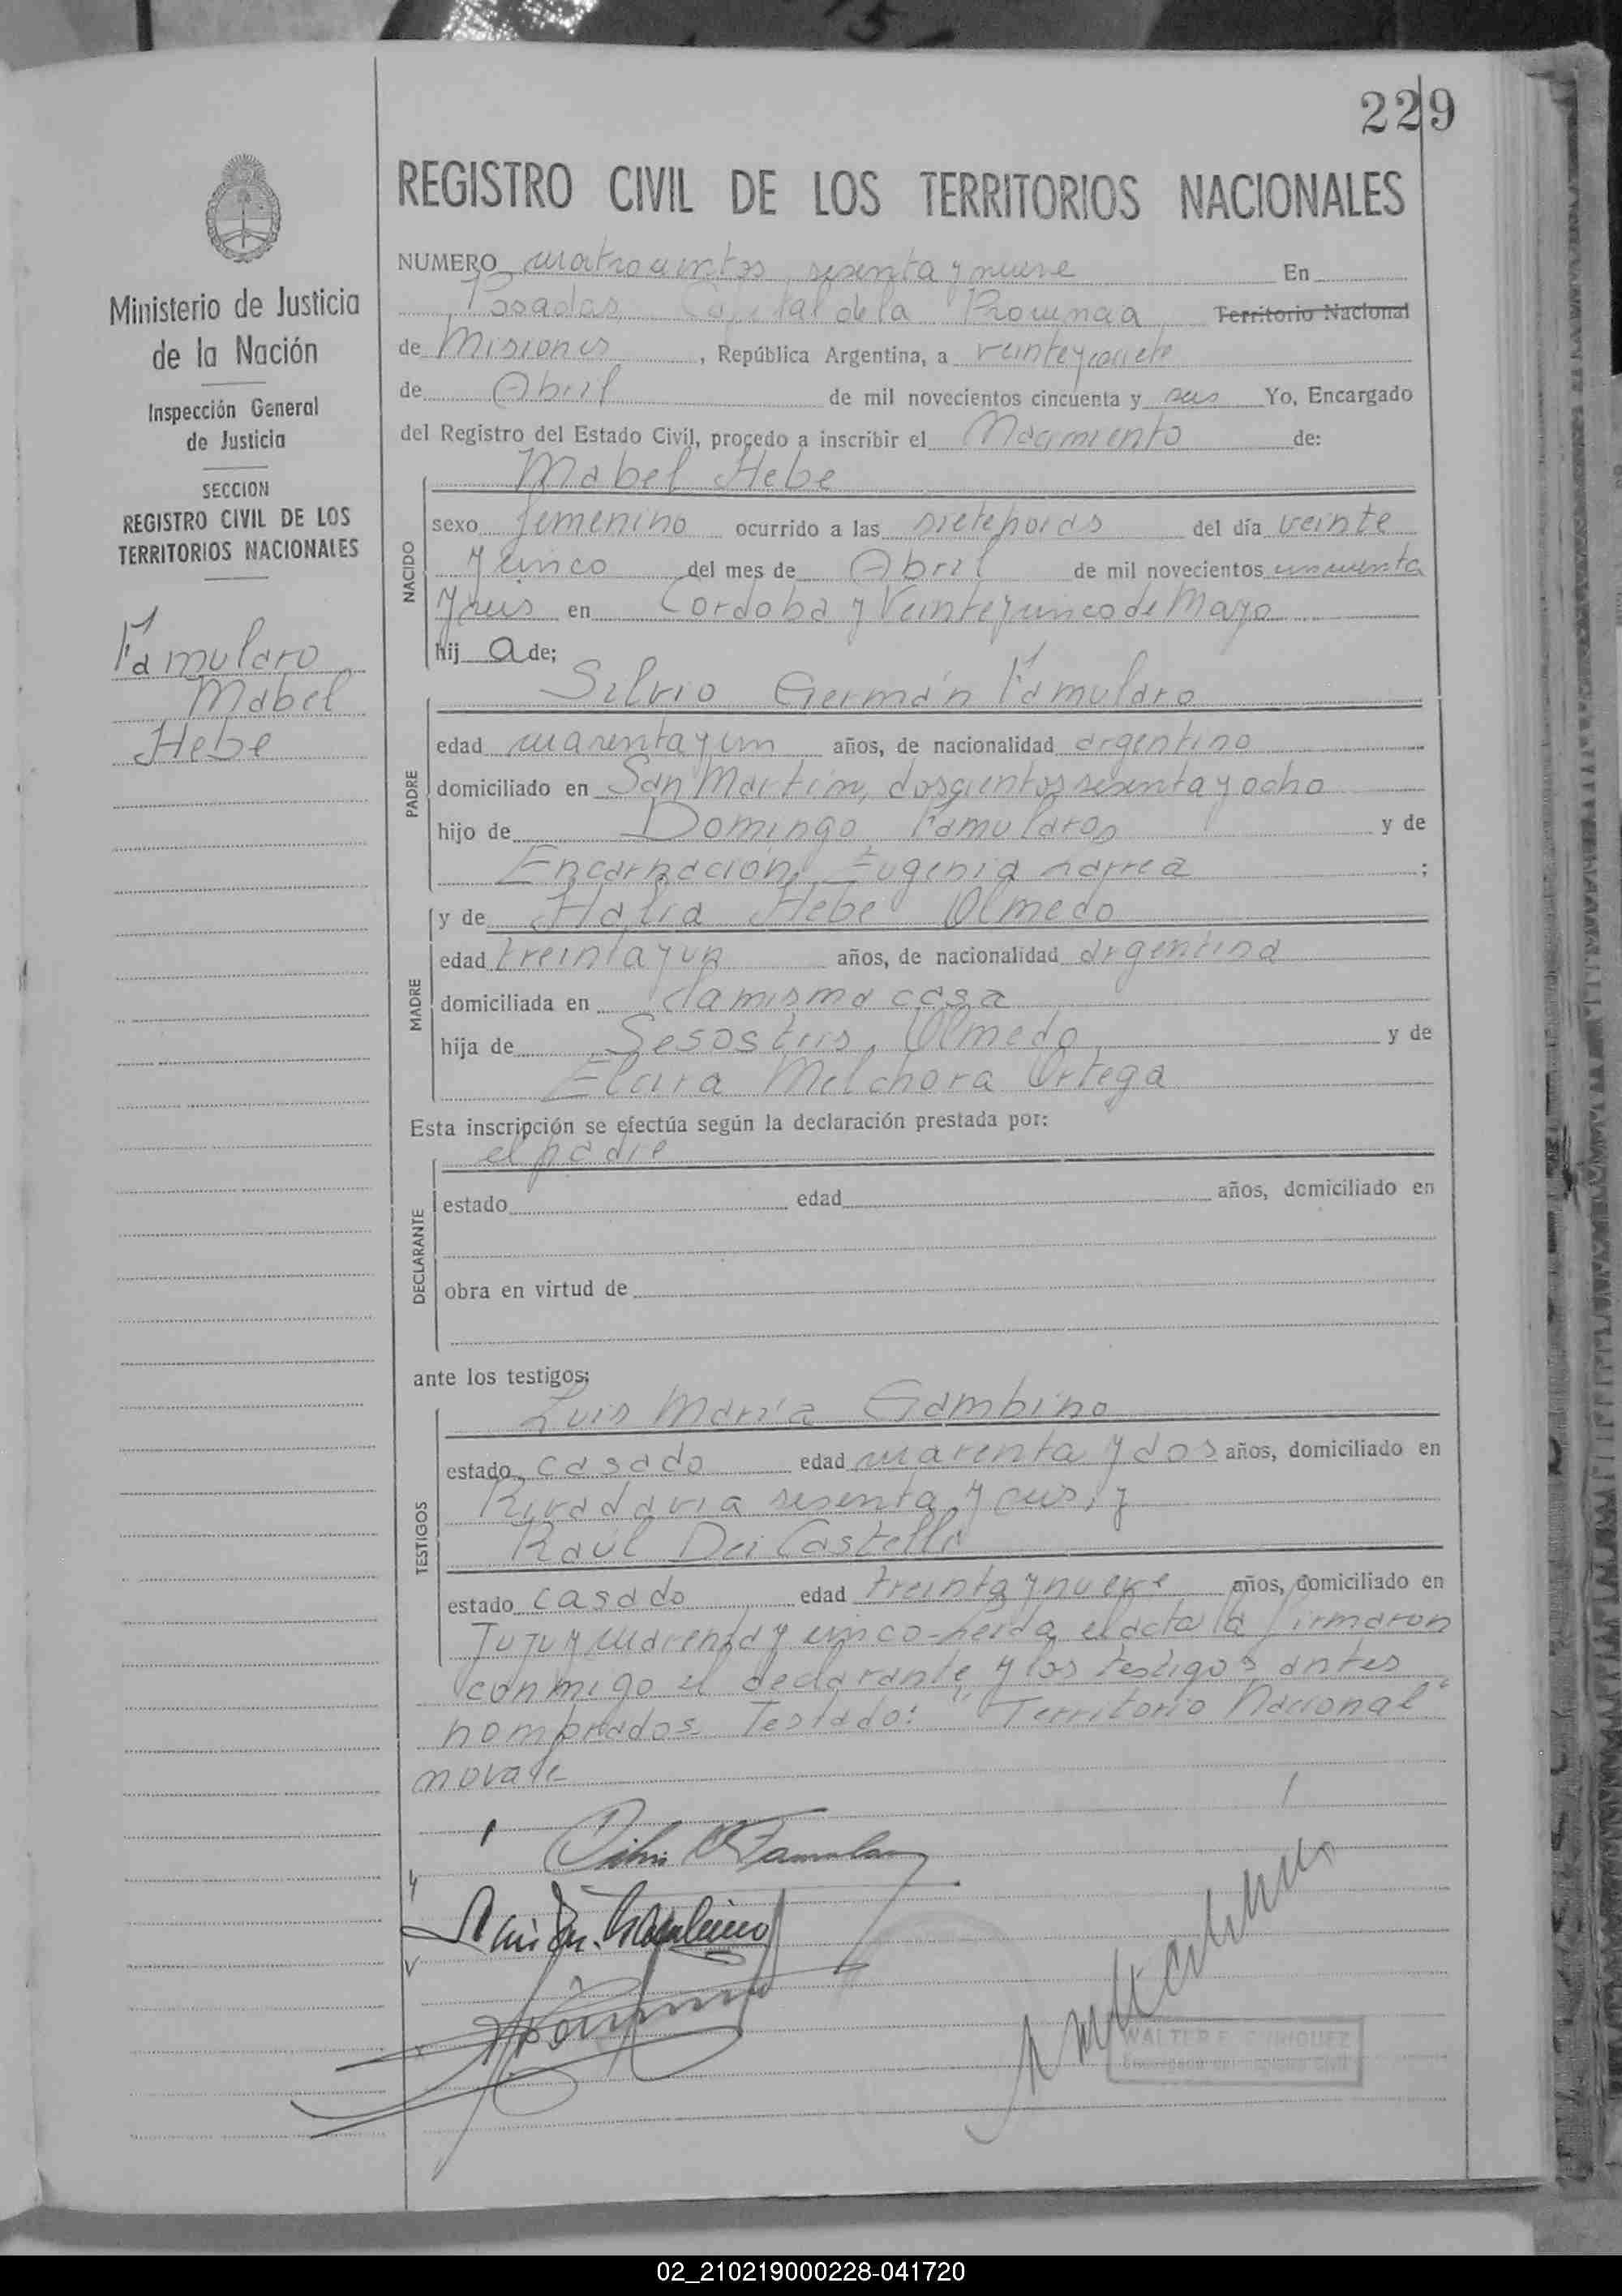 229
REGISTRO CIVIL DE LOS TERRITORIOS NACIONALES
Ministerio de Justicia
de la Nación
Inspección General
de Justicia
SECCION
REGISTRO CIVIL DE LOS
TERRITORIOS NACIONALES
Famularo
Mabel
Hebe
NUMERO cuatrocientos sesenta y nueve En
Posadas, Capital de la Provincia Territorio Nacional
de Misiones, República Argentina, a veintey siete
de Abril de mil novecientos cincuenta y seis Yo, Encargado
del Registro del Estado Civil, procedo a inscribir el Nacimiento de:
NACIDO
Mabel Hebe
sexo femenino ocurrido a las siete horas del día veinte
y cinco del mes de Abril de mil novecientos cincuenta
y seis en Cordoba y Veinte y cinco de Mayo
hij a de;
PADRE
Silvio Germán Famularo
edad cuarenta y un años, de nacionalidad argentino
domiciliado en San Martín, doscientos sesenta y ocho
hijo de Domingo Famularo y de
Encarnación Eugenia Larrea ;
MADRE
y de Halia Hebe Olmedo
edad treinta y un años, de nacionalidad argentina
domiciliada en la misma casa
hija de Sesostris Olmedo y de
Elcira Melchora Ortega
Esta inscripción se efectúa según la declaración prestada por:
DECLARANTE
el padre
estado edad años, domiciliado en
obra en virtud de
ante los testigos:
TESTIGOS
Luis María Gambino
estado casado edad cuarenta y dos años, domiciliado en
Rivadavia sesenta y seis, y
Raúl Dei Castelli
estado casado edad treinta y nueve años, domiciliado en
Jujuy cuarenta y cinco - Leida el acta la firmaron
conmigo el declarante y los testigos antes
nombrados Testado: "Territorio Nacional"
no vale
WALTER E. ENRIQUEZ
02_210219000228-041720